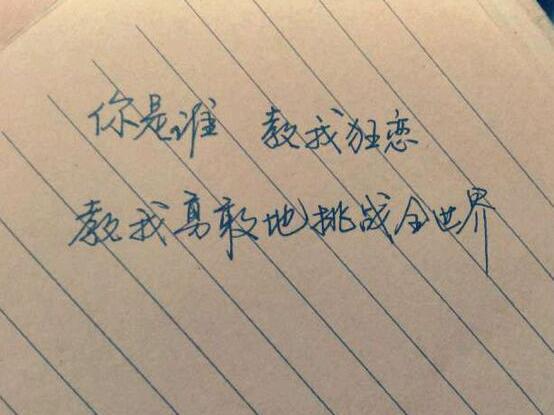 你是谁 教我狂恋
教我勇敢地挑战全世界